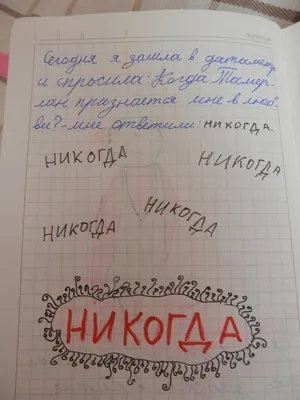 Сегодня я зашла в датаметр
и спросила: Когда Тамер-
лан признается мне в люб-
ви? - мне ответили: НИКОГДА.
НИКОГДА
НИКОГДА
НИКОГДА
НИКОГДА
НИКОГДА